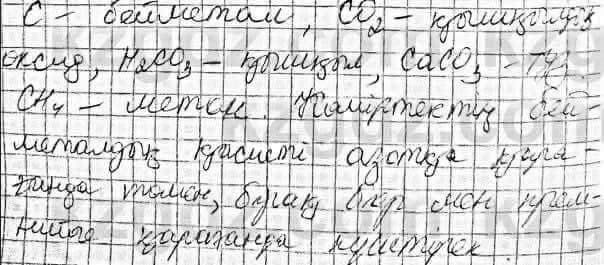 C – бейметалл, CO₂ – қышқылдық
оксид, H₂CO₃ – қышқыл, CaCO₃ – тұз.
CH₄ – метан. Көміртектің бей-
металдық қасиеті азотқа қара-
ғанда төмен, бірақ бор мен крем-
нийге қарағанда күштірек